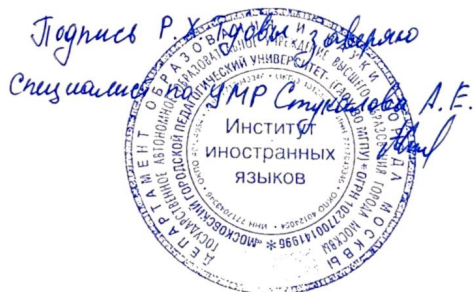 Подпись Р.Х. заверяю
Специалист по УМР Стукалова А.Е.
ДЕПАРТАМЕНТ ОБРАЗОВАНИЯ И НАУКИ ГОРОДА МОСКВЫ
ГОСУДАРСТВЕННОЕ АВТОНОМНОЕ ОБРАЗОВАТЕЛЬНОЕ УЧРЕЖДЕНИЕ ВЫСШЕГО ОБРАЗОВАНИЯ ГОРОДА МОСКВЫ
«МОСКОВСКИЙ ГОРОДСКОЙ ПЕДАГОГИЧЕСКИЙ УНИВЕРСИТЕТ» (ГАОУ ВО МГПУ) * ОГРН 1027700141996 *
Институт
иностранных
языков